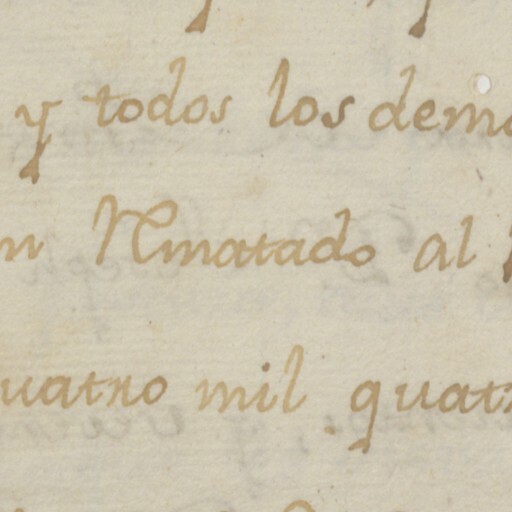 y todos los dema
n Rematado al
uatro mil quatr